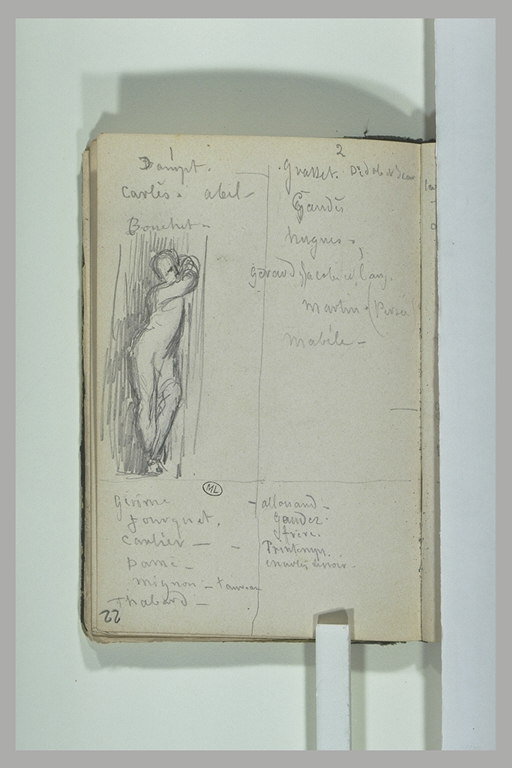 Dampt.
Carlès. abel -
Bouchet -
2
Grasset.
Gaudès
hugues -
gérard, Jacob
Martin - (Persé
Mabile -
ML
Gérôme
fourquet.
Carlier -
Damé -
mignon - taureau
Thabard -
allouard -
Gaudez
frère.
Printemps.
charles lenoir -
22